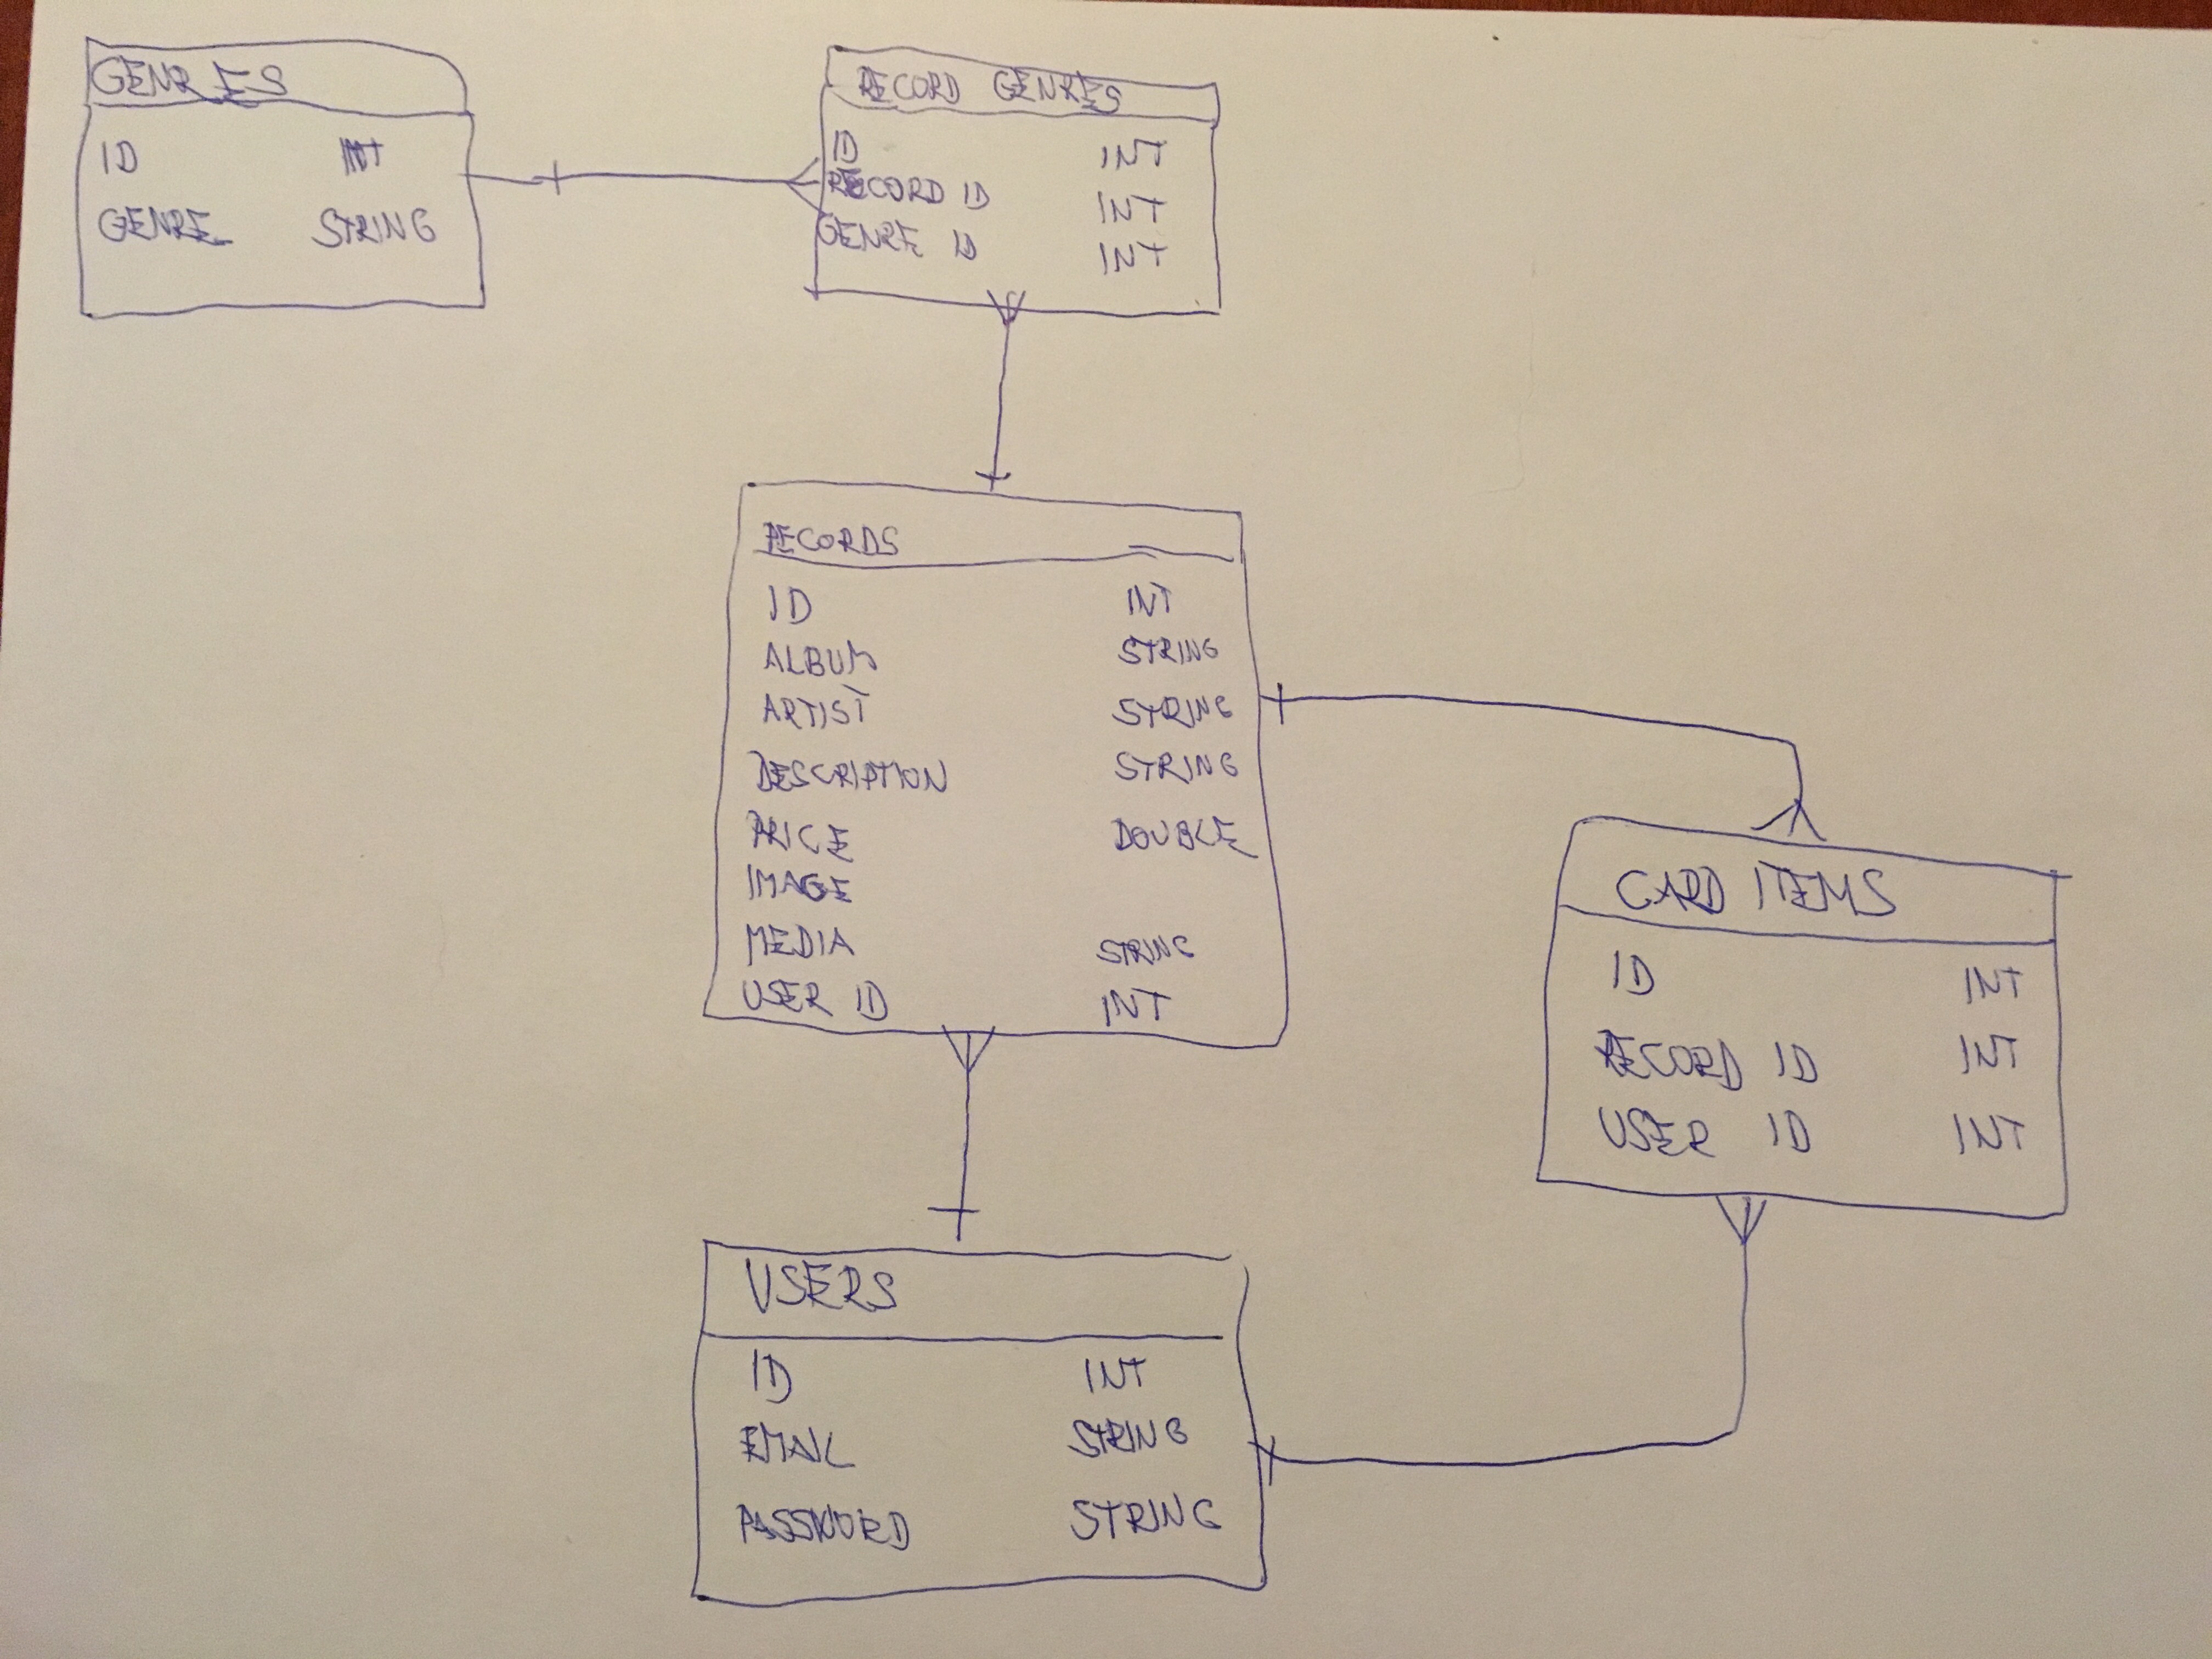 GENRES
ID INT
GENRE STRING
RECORD GENRES
ID INT
RECORD ID INT
GENRE ID INT
RECORDS
ID INT
ALBUM STRING
ARTIST STRING
DESCRIPTION STRING
PRICE DOUBLE
IMAGE
MEDIA STRING
USER ID INT
CARD ITEMS
ID INT
RECORD ID INT
USER ID INT
USERS
ID INT
EMAIL STRING
PASSWORD STRING